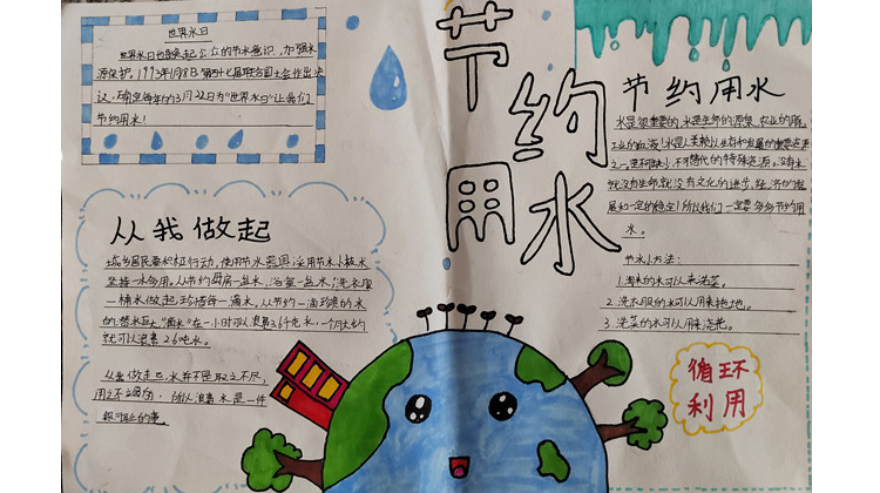 世界水日
世界水日是唤起公众的节水意识,加强水
源保护。1993年1月8日第四十七届联合国大会作出决
议,确定每年的3月22日为"世界水日"让我们
节约用水!
节约用水
节约用水
水是很重要的,水是生命的源泉,农业的
工业的血液!水是人类赖以生存和发展的重要资源
之一。是不可缺少,不可替代的特殊资源。没有水
就没有生命,就没有文化的进步,经济的发
展和一定的稳定!所以我们一定要多多节约用
水。
节水小方法:
1.淘米的水可以来洗菜。
2.洗衣服的水可以用来拖地。
3.洗菜的水可以用来浇花。
循环
利用
从我做起
城乡居民要积极行动,使用节水器具;采用节水
坚持一水多用。从节约厨房一盆水,浴室一盆水,洗衣服
一桶水做起珍惜每一滴水。从节约一滴
的"滴水"在一小时可以浪费3.6千克水,一个月
就可以浪费2.6吨水。
从我做起吧,水并不是取之不尽,
用之不竭的,所以浪费水是一件
很可耻的事。